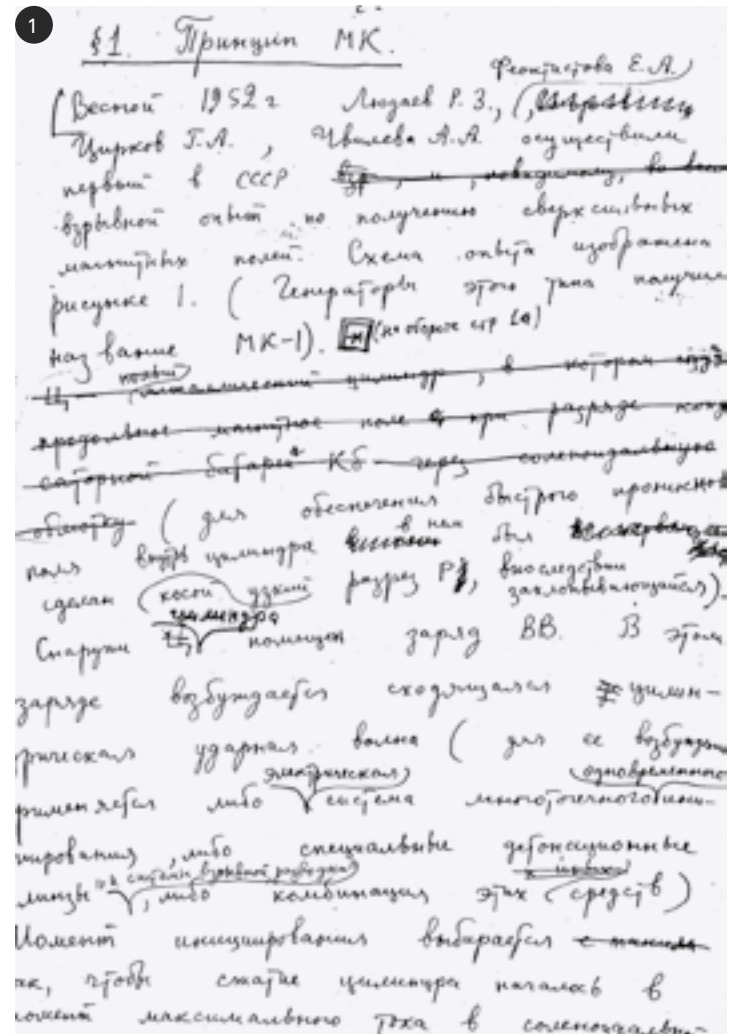 1
§1. Принцип МК.
Феоктистова Е.А.
Весной 1952 г Людаев Р.З.,
Цирков Г.А., Чвилева А.А. осуществили
первый в СССР
взрывной опыт по получению сверхсильных
магнитных полей. Схема опыта изображена
рисунке 1. (Генераторы этого типа получили
название МК-1). (на обороте стр 1а)
полый
Ц - металлический цилиндр, в котором
продольное магнитное поле при разряде
саторной батареи Кб через соленоидальную
обмотку (для обеспечения быстрого
поля внутрь цилиндра в нем был
сделан косой узкий разрез Р, впоследствии захлопывающийся).
цилиндра
Снаружи Ц помещен заряд ВВ. В этом
заряде возбуждается сходящаяся цилин-
рическая ударная волна (для ее
электрическая одновременного
рименяется либо система многоточечного ини-
иирования, либо специальные детонационные
и иных
линзы и системы взрывной разводки, либо комбинация этих средств)
Момент инициирования выбирается
ак, чтобы сжатие цилиндра началось в
омент максимального тока в